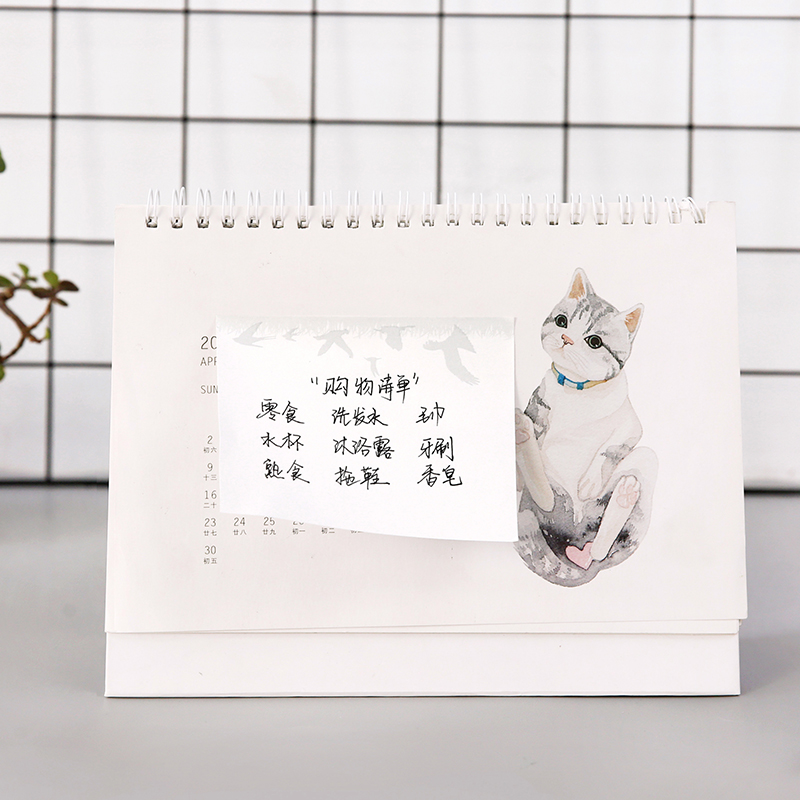 20
APR
SUN
"购物清单"
零食 洗发水 毛巾
水杯 沐浴露 牙刷
熟食 拖鞋 香皂
2
初六
9
十三
16
二十
23 24 25
廿七 廿八 廿九 初一 初二
30
初五